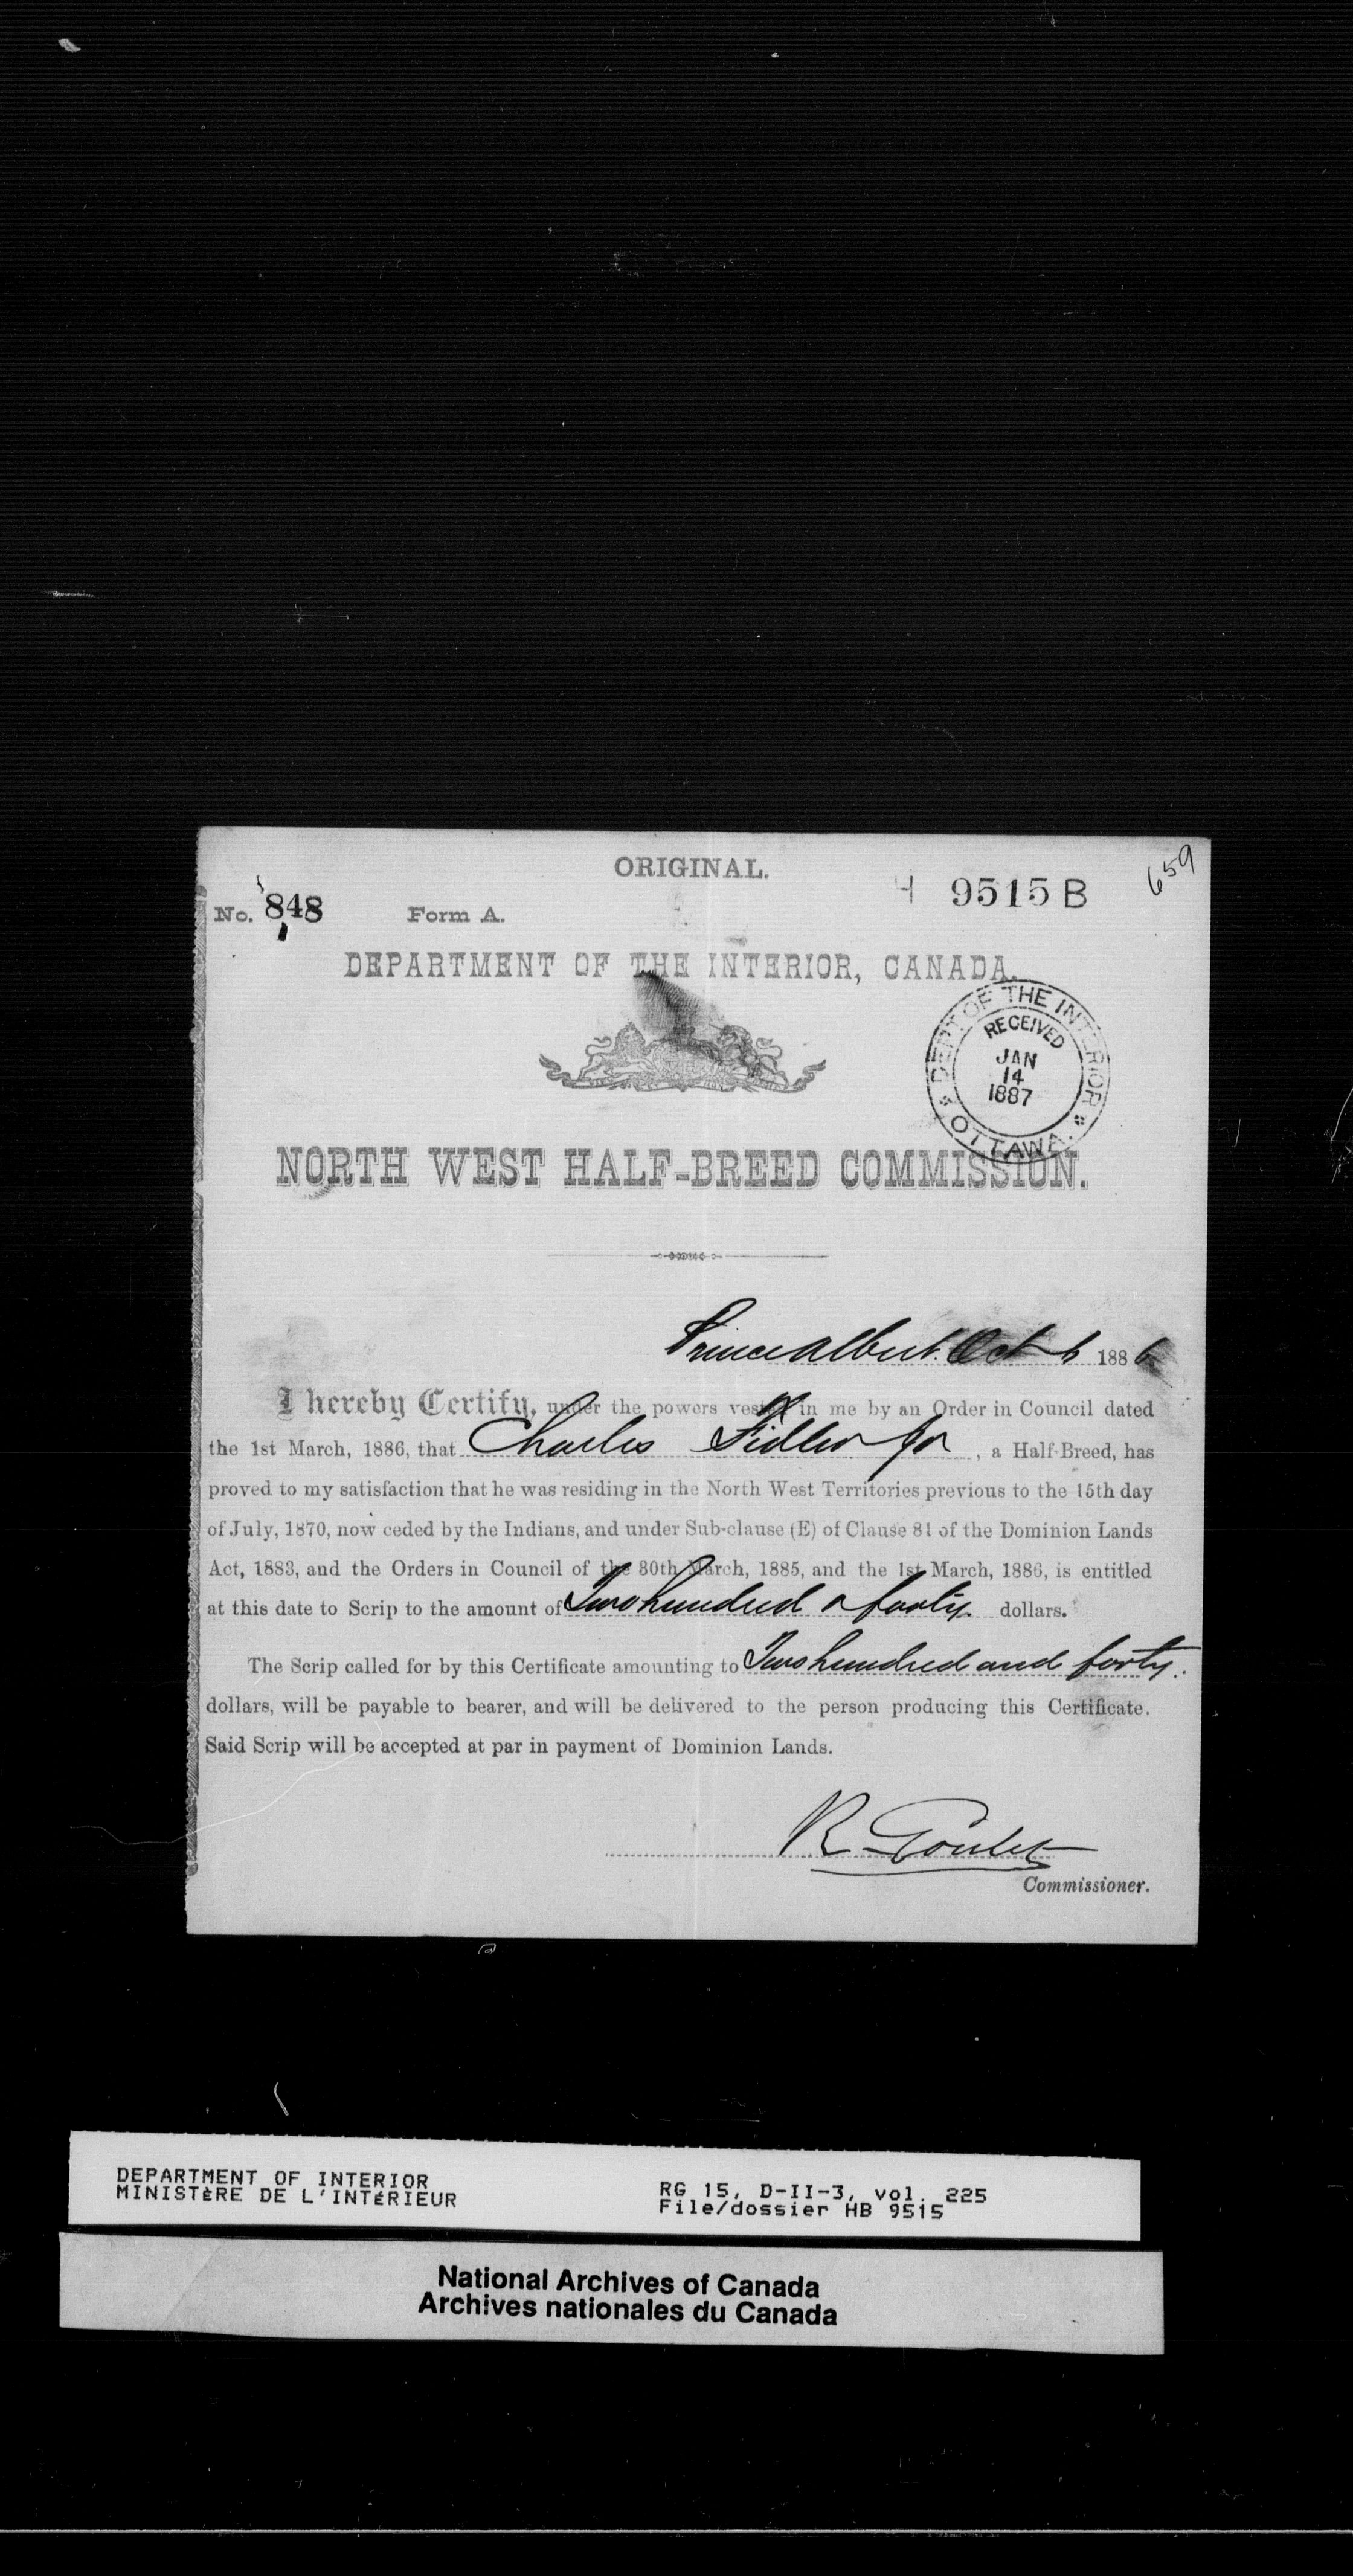 ORIGINAL.
659
No. 848 Form A. H 9515 B
DEPARTMENT OF THE INTERIOR, CANADA.
DEPT OF THE INTERIOR
RECEIVED
JAN
14
1887
OTTAWA.
NORTH WEST HALF-BREED COMMISSION.
Prince Albert. Oct 6 1886
I hereby Certify, under the powers vested in me by an Order in Council dated
the 1st March, 1886, that Charles Fidler Jr, a Half-Breed, has
proved to my satisfaction that he was residing in the North West Territories previous to the 15th day
of July, 1870, now ceded by the Indians, and under Sub-clause (E) of Clause 81 of the Dominion Lands
Act, 1883, and the Orders in Council of the 30th March, 1885, and the 1st March, 1886, is entitled
at this date to Scrip to the amount of Two hundred & forty. dollars.
The Scrip called for by this Certificate amounting to Two hundred and forty.
dollars, will be payable to bearer, and will be delivered to the person producing this Certificate.
Said Scrip will be accepted at par in payment of Dominion Lands.
R Goulet
Commissioner.
DEPARTMENT OF INTERIOR
MINISTÈRE DE L'INTÉRIEUR
RG 15, D-II-3, vol. 225
File/dossier HB 9515
National Archives of Canada
Archives nationales du Canada